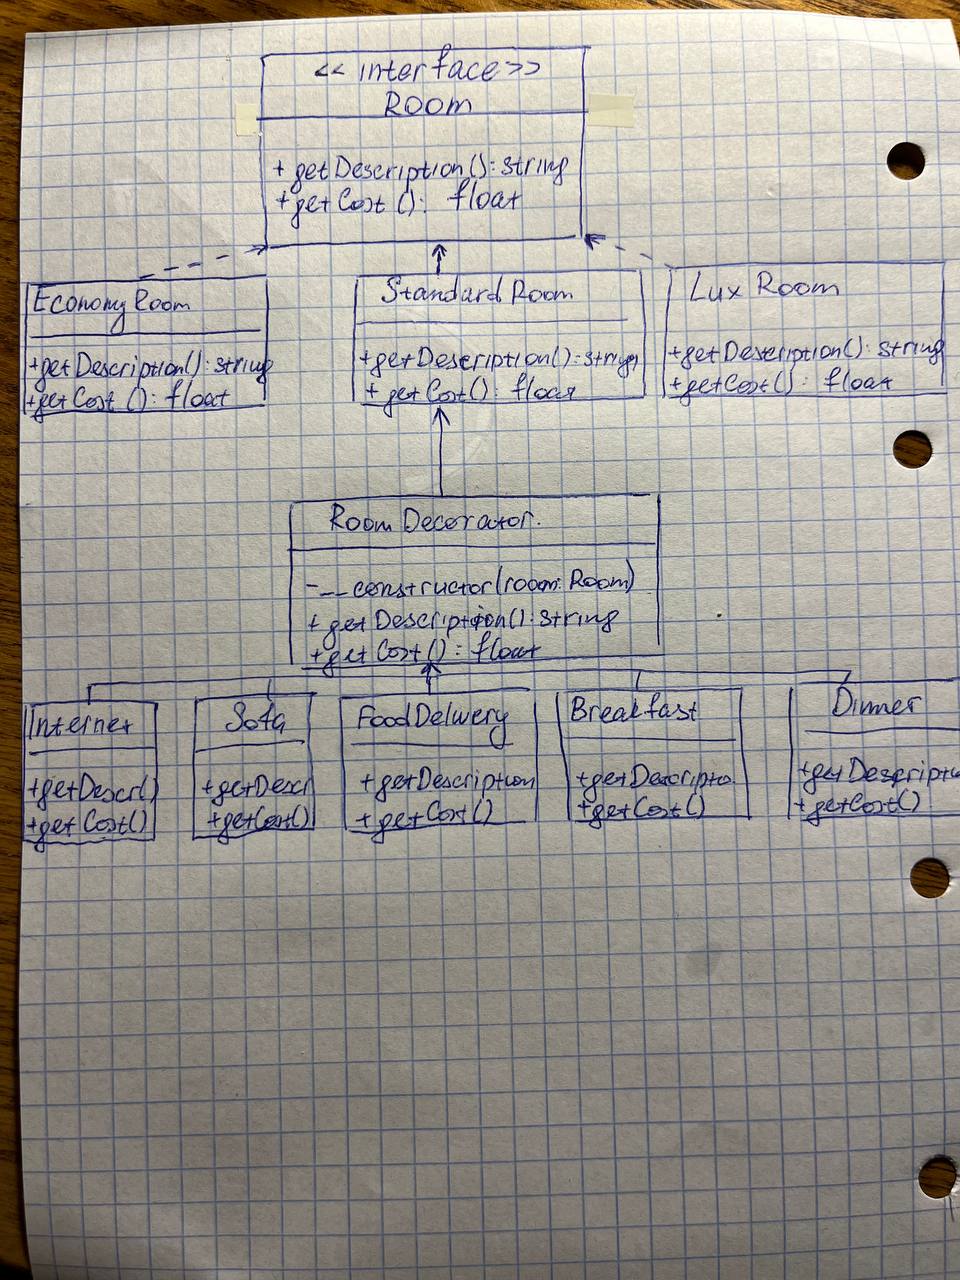 << interface >>
Room
+ getDescription(): string
+ getCost(): float
Economy Room
+getDescription(): string
+getCost(): float
Standard Room
+getDescription(): string
+ getCost(): float
Lux Room
+getDescription(): string
+getCost(): float
Room Decorator.
-__constructor(room: Room)
+ getDescription(): string
+getCost(): float
Internet
+getDescr()
+getCost()
Sofa
+getDescr
+getCost()
FoodDelivery
+getDescription
+getCost()
Breakfast
+getDescriptio
+getCost()
Dinner
+getDescriptio
+getCost()